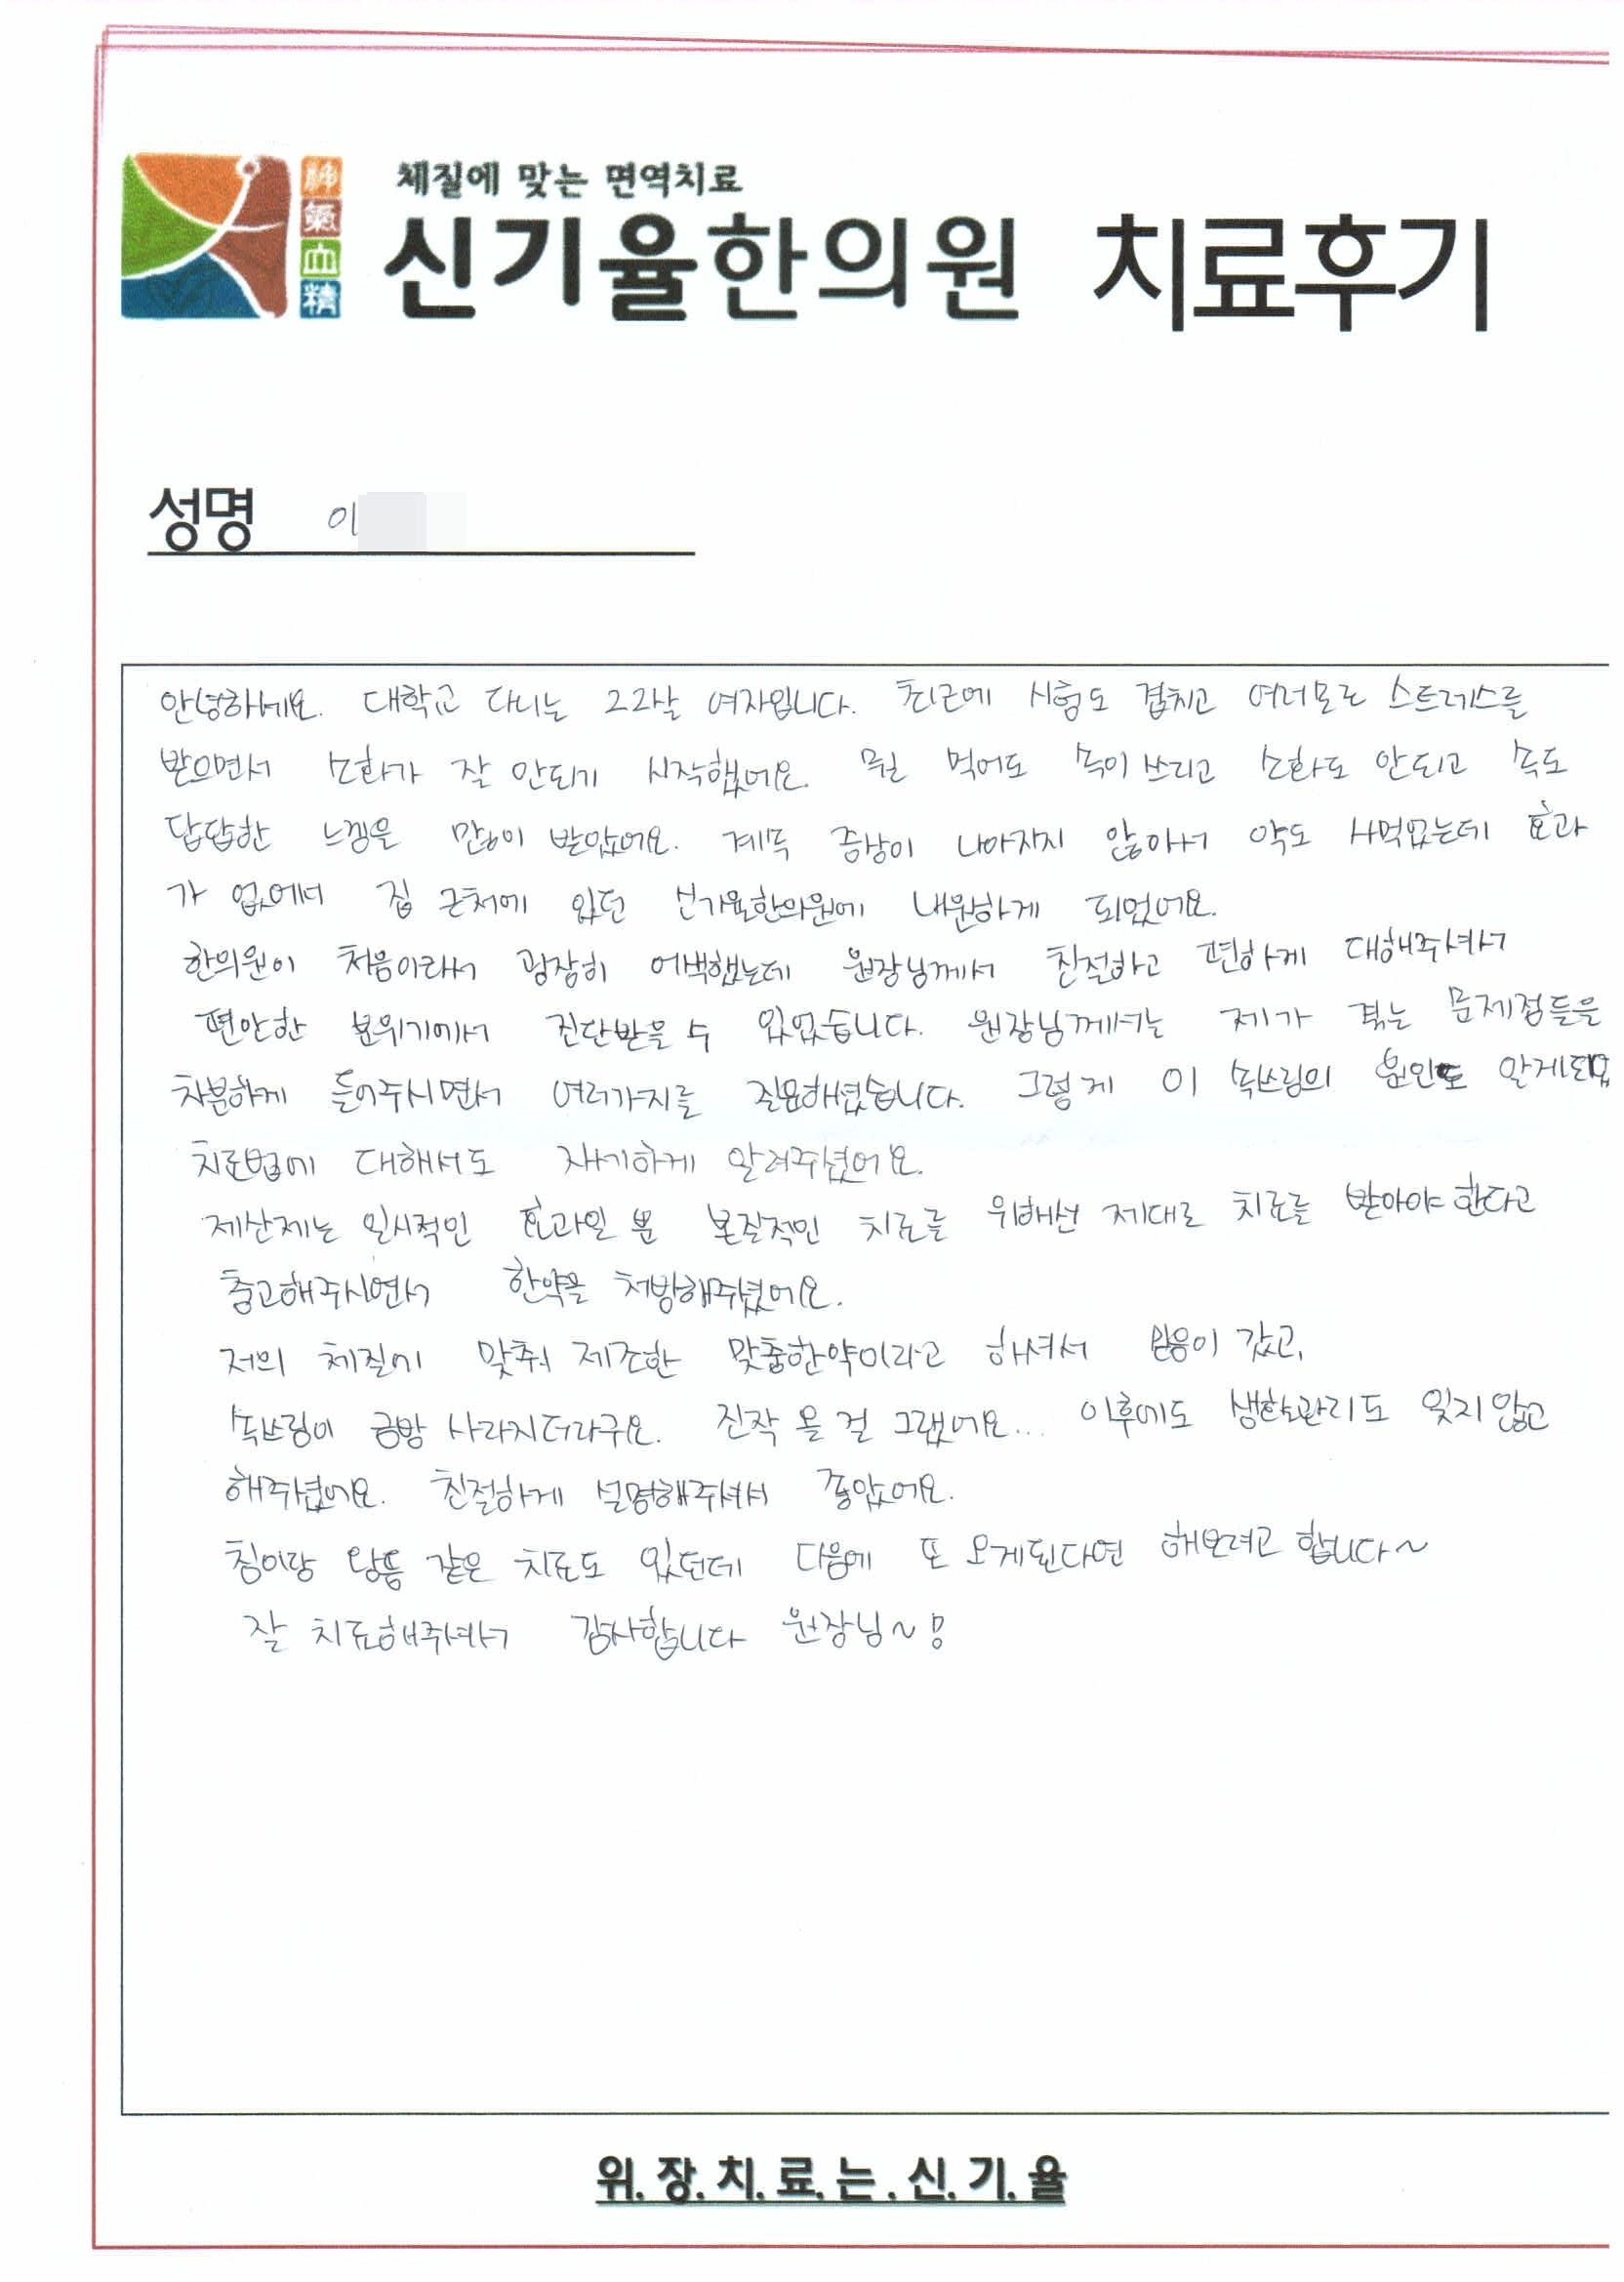 체질에 맞는 면역치료
신기율한의원 치료후기
肺
氣
血
精
성명 이
안녕하세요. 대학교 다니는 22살 여자입니다. 최근에 시험도 겹치고 여러모로 스트레스를
받으면서 소화가 잘 안되기 시작했어요. 뭘 먹어도 속이 쓰리고 소화도 안되고 속도
답답한 느낌을 많이 받았어요. 계속 증상이 나아지지 않아서 약도 사먹었는데 효과
가 없어서 집 근처에 있던 신기율한의원에 내원하게 되었어요.
한의원이 처음이라서 굉장히 어색했는데 원장님께서 친절하고 편하게 대해주셔서
편안한 분위기에서 진단받을 수 있었습니다. 원장님께서는 제가 겪는 문제점들을
차분하게 들어주시면서 여러가지를 질문해셨습니다. 그렇게 이 속쓰림의 원인도 알게되었
치료법에 대해서도 자세하게 알려주셨어요.
제산제는 일시적인 효과일 뿐 본질적인 치료를 위해선 제대로 치료를 받아야 한다고
충고해주시면서 한약을 처방해주셨어요.
저의 체질에 맞춰 제조한 맞춤한약이라고 하셔서 믿음이 갔고,
속쓰림이 금방 사라지더라구요. 진작 올 걸 그랬어요... 이후에도 생활관리도 잊지않고
해주셨어요. 친절하게 설명해주셔서 좋았어요.
침이랑 왕뜸 같은 치료도 있던데 다음에 또 오게된다면 해보려고 합니다~
잘 치료해주셔서 감사합니다 원장님~!
위.장.치.료.는.신.기.율